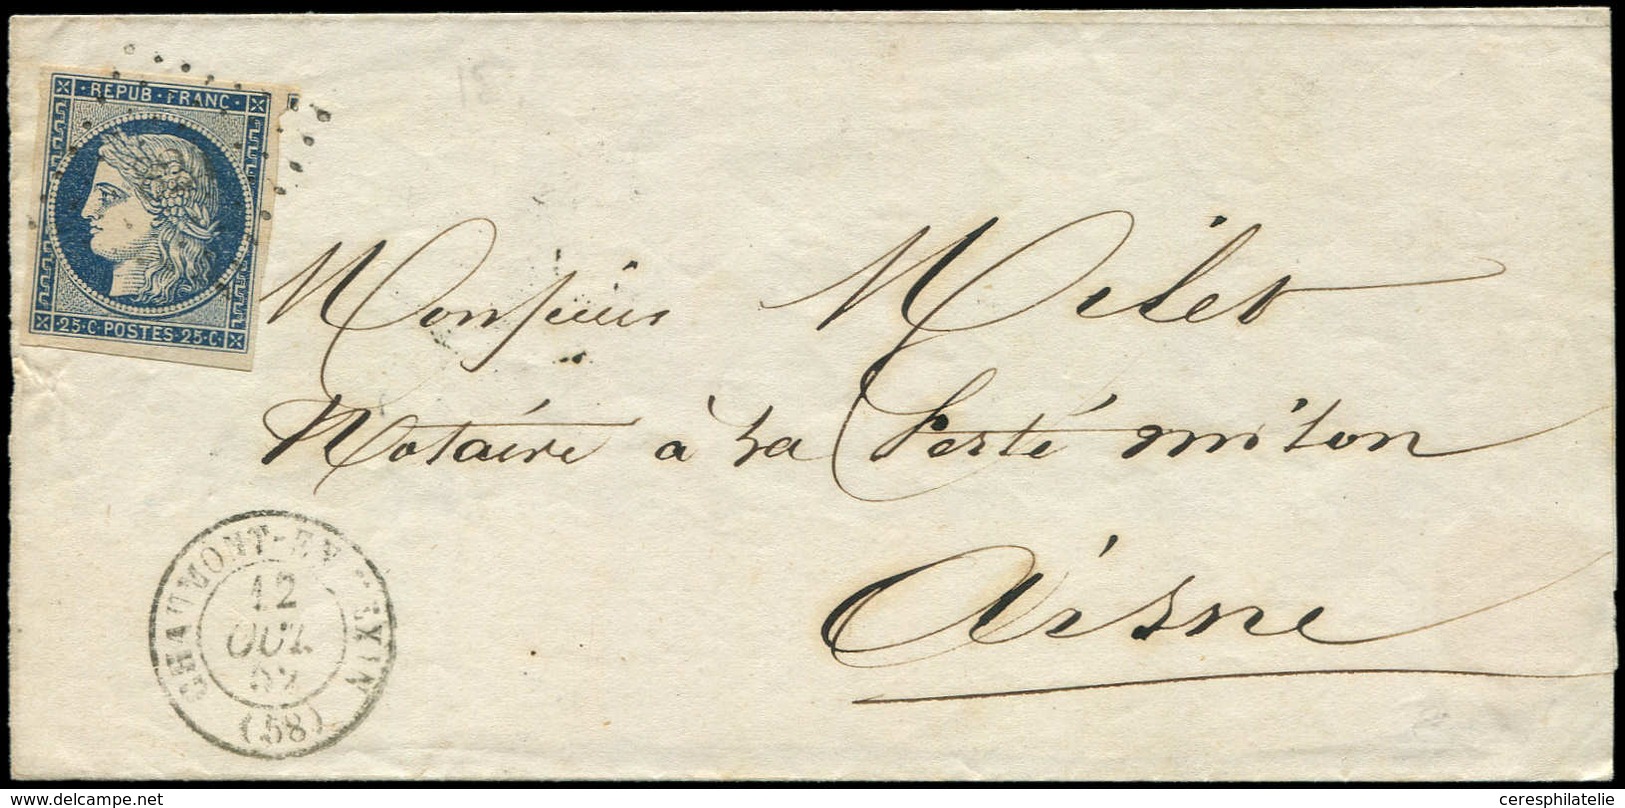 REPUB · FRANC ·
25 · C · POSTES · 25 · C ·
Monsieur Milet
Notaire à La ferté milon
Aisne
CHAUMONT-EN-VEXIN
12
OCT.
52
(58)
delcampe.net
ceresphilatelie